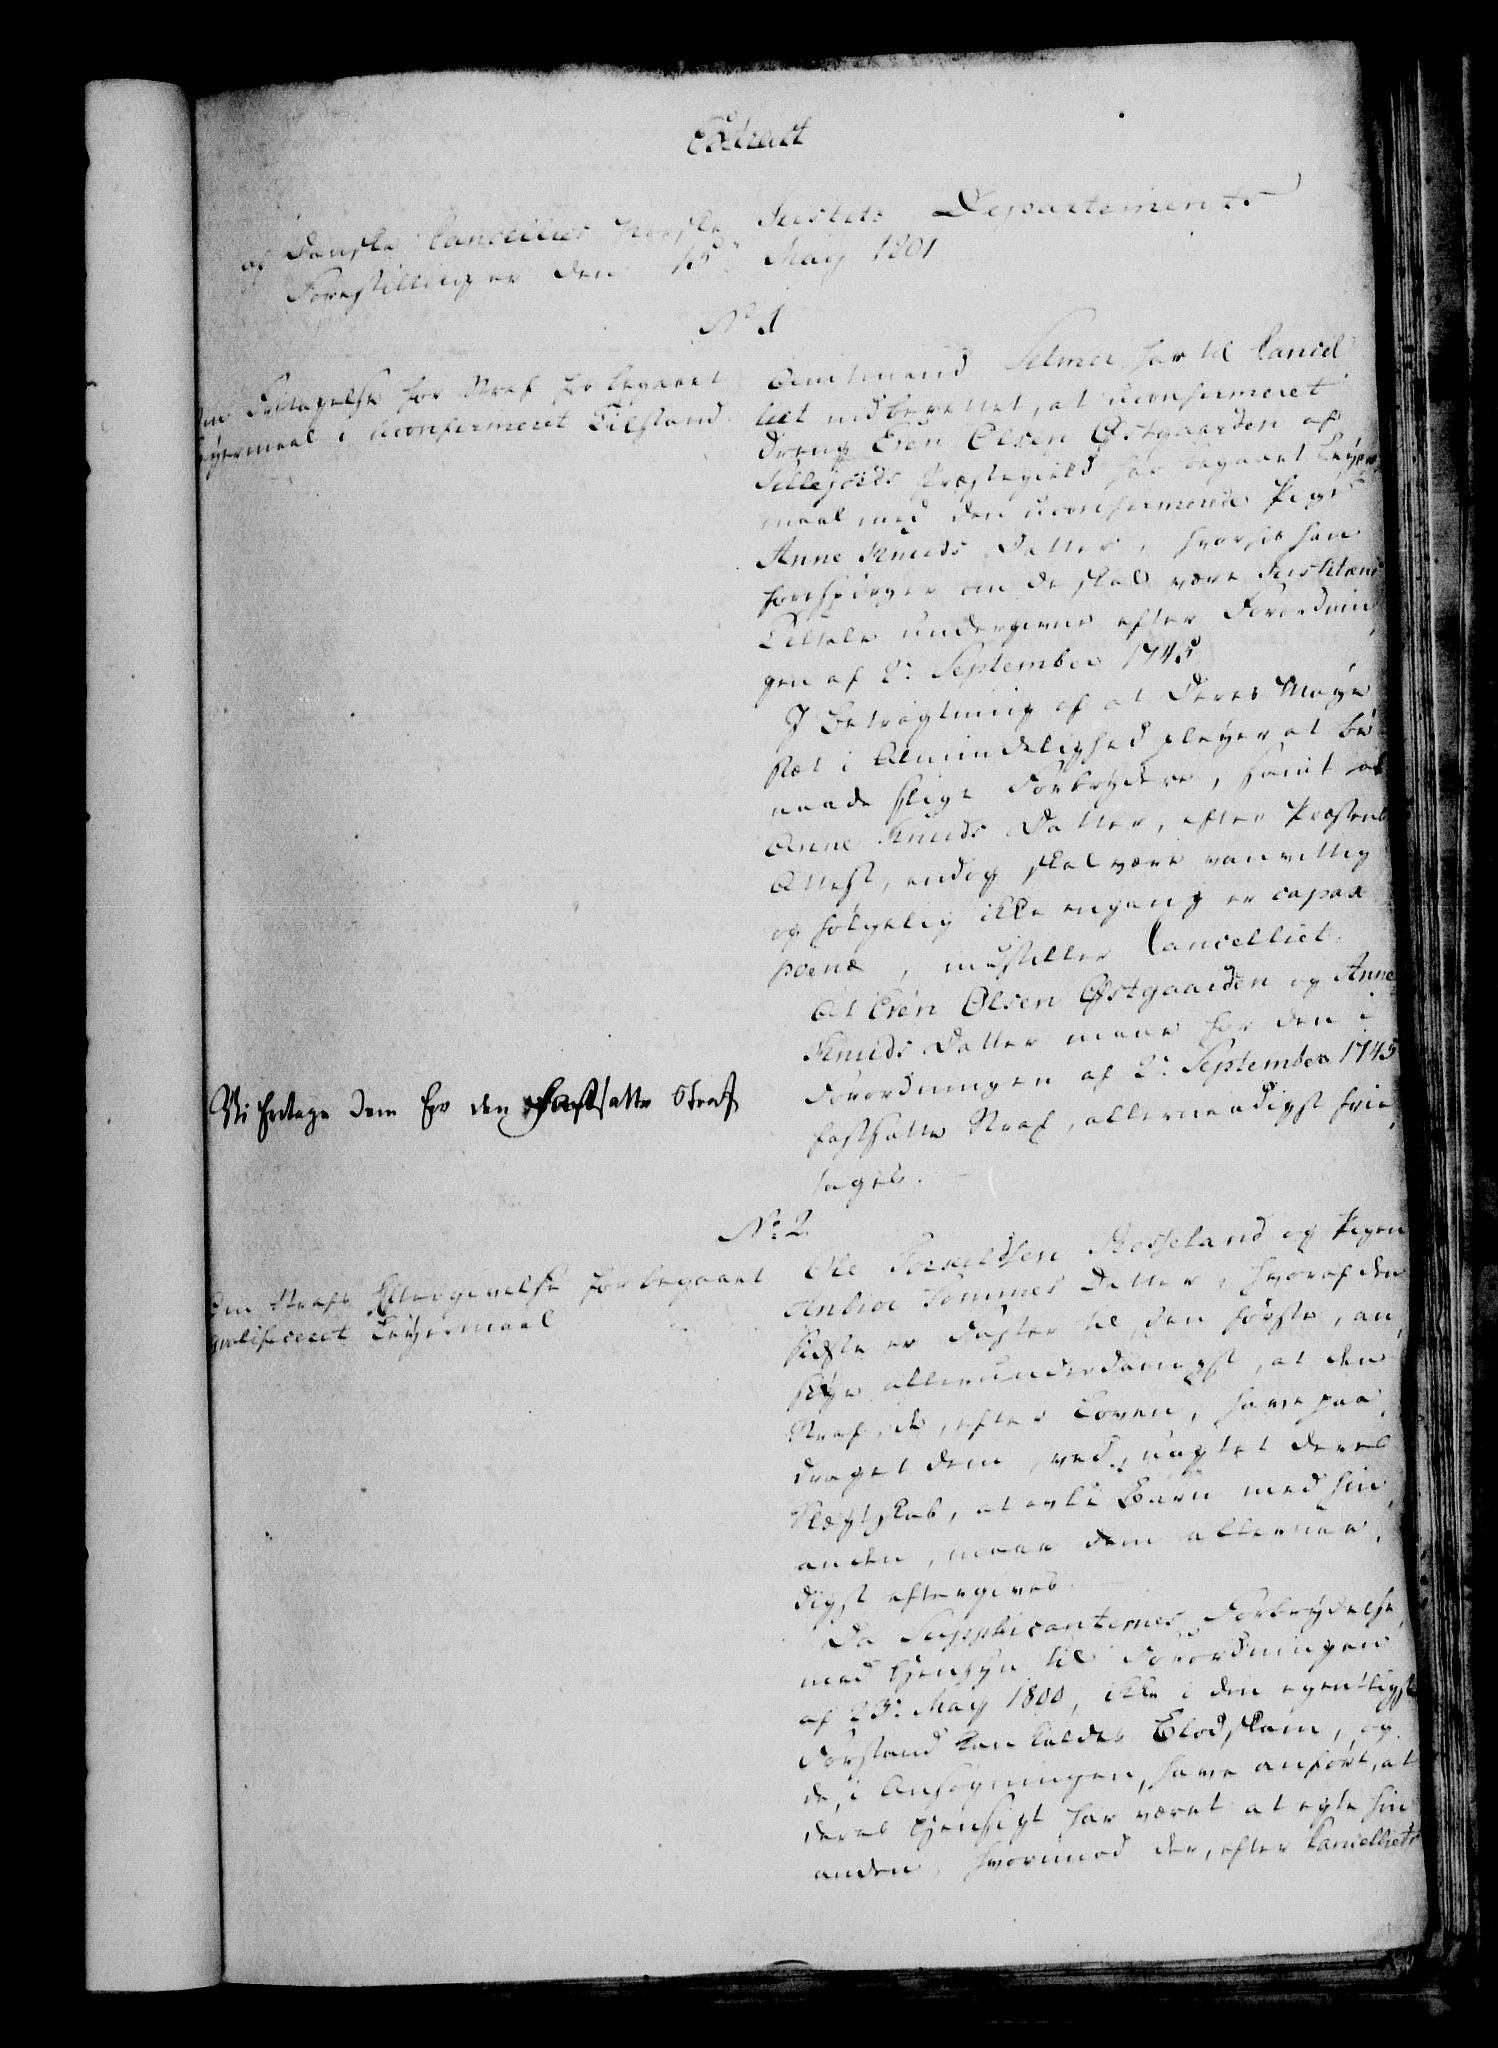 Extract
af Danske Cancellies Norske Justits Departements
Forestillinger den 15 May 1801
No 1
om Fritagelse for Straf for begaaet
Leyermaal i uconfirmeret Tilstand
Amtmand Selmer har til Cancel
liet indberettet, at uconfirmeret
Dreng Even Olsen Østgaarden af
Sillejords Præstegield har begaaet Leyer
maal med den uconfirmerede Pige
Anne Knuds Datter, hvorfor han
forespørger om de skal være Justitiens
Tiltale undergivne efter Forordnin
gen af 2: September 1745
I Betragtning af at Deres Maje
stæt i Almindelighed pleyer at be
naade slige Forbrydere, samt at
Anne Knuds Datter, efter Præstens
Attest, endog skal være vanvittig
og følgelig ikke engang er capax
poenæ, indstiller Cancelliet:
At Even Olsen Østgaarden og Anne
Knuds Datter maae for den i
Forordningen af 2: September 1745
fastsatte Straf, allernaadigst frie
tages.
Vi fritage dem for den fastsatte Straf
No: 2.
om Strafs Eftergivelse for begaaet
qvalificeret Leyermaal
Ole Torkildsen Rosseland og Pigen
Anbior Tommes Datter, hvoraf den
sidste er Faster til den første, an
søge allerunderdanigst, at den
Straf, de, efter Loven, have paa
draget dem, ved, uagtet deres
Slægtskab, at avle Barn med hin
anden, maae dem allernaa
digst eftergives.
Da Supplicanternes Forbrydelse,
med Hensyn til Forordningen
af 23: May 1800, ikke i den egentligste
Forstand kan kaldes Blodskam, og
de, i Ansøgningen, have anført, at
deres Hensigt har været at egte hin
anden, hvorimod der, efter Cancelliets